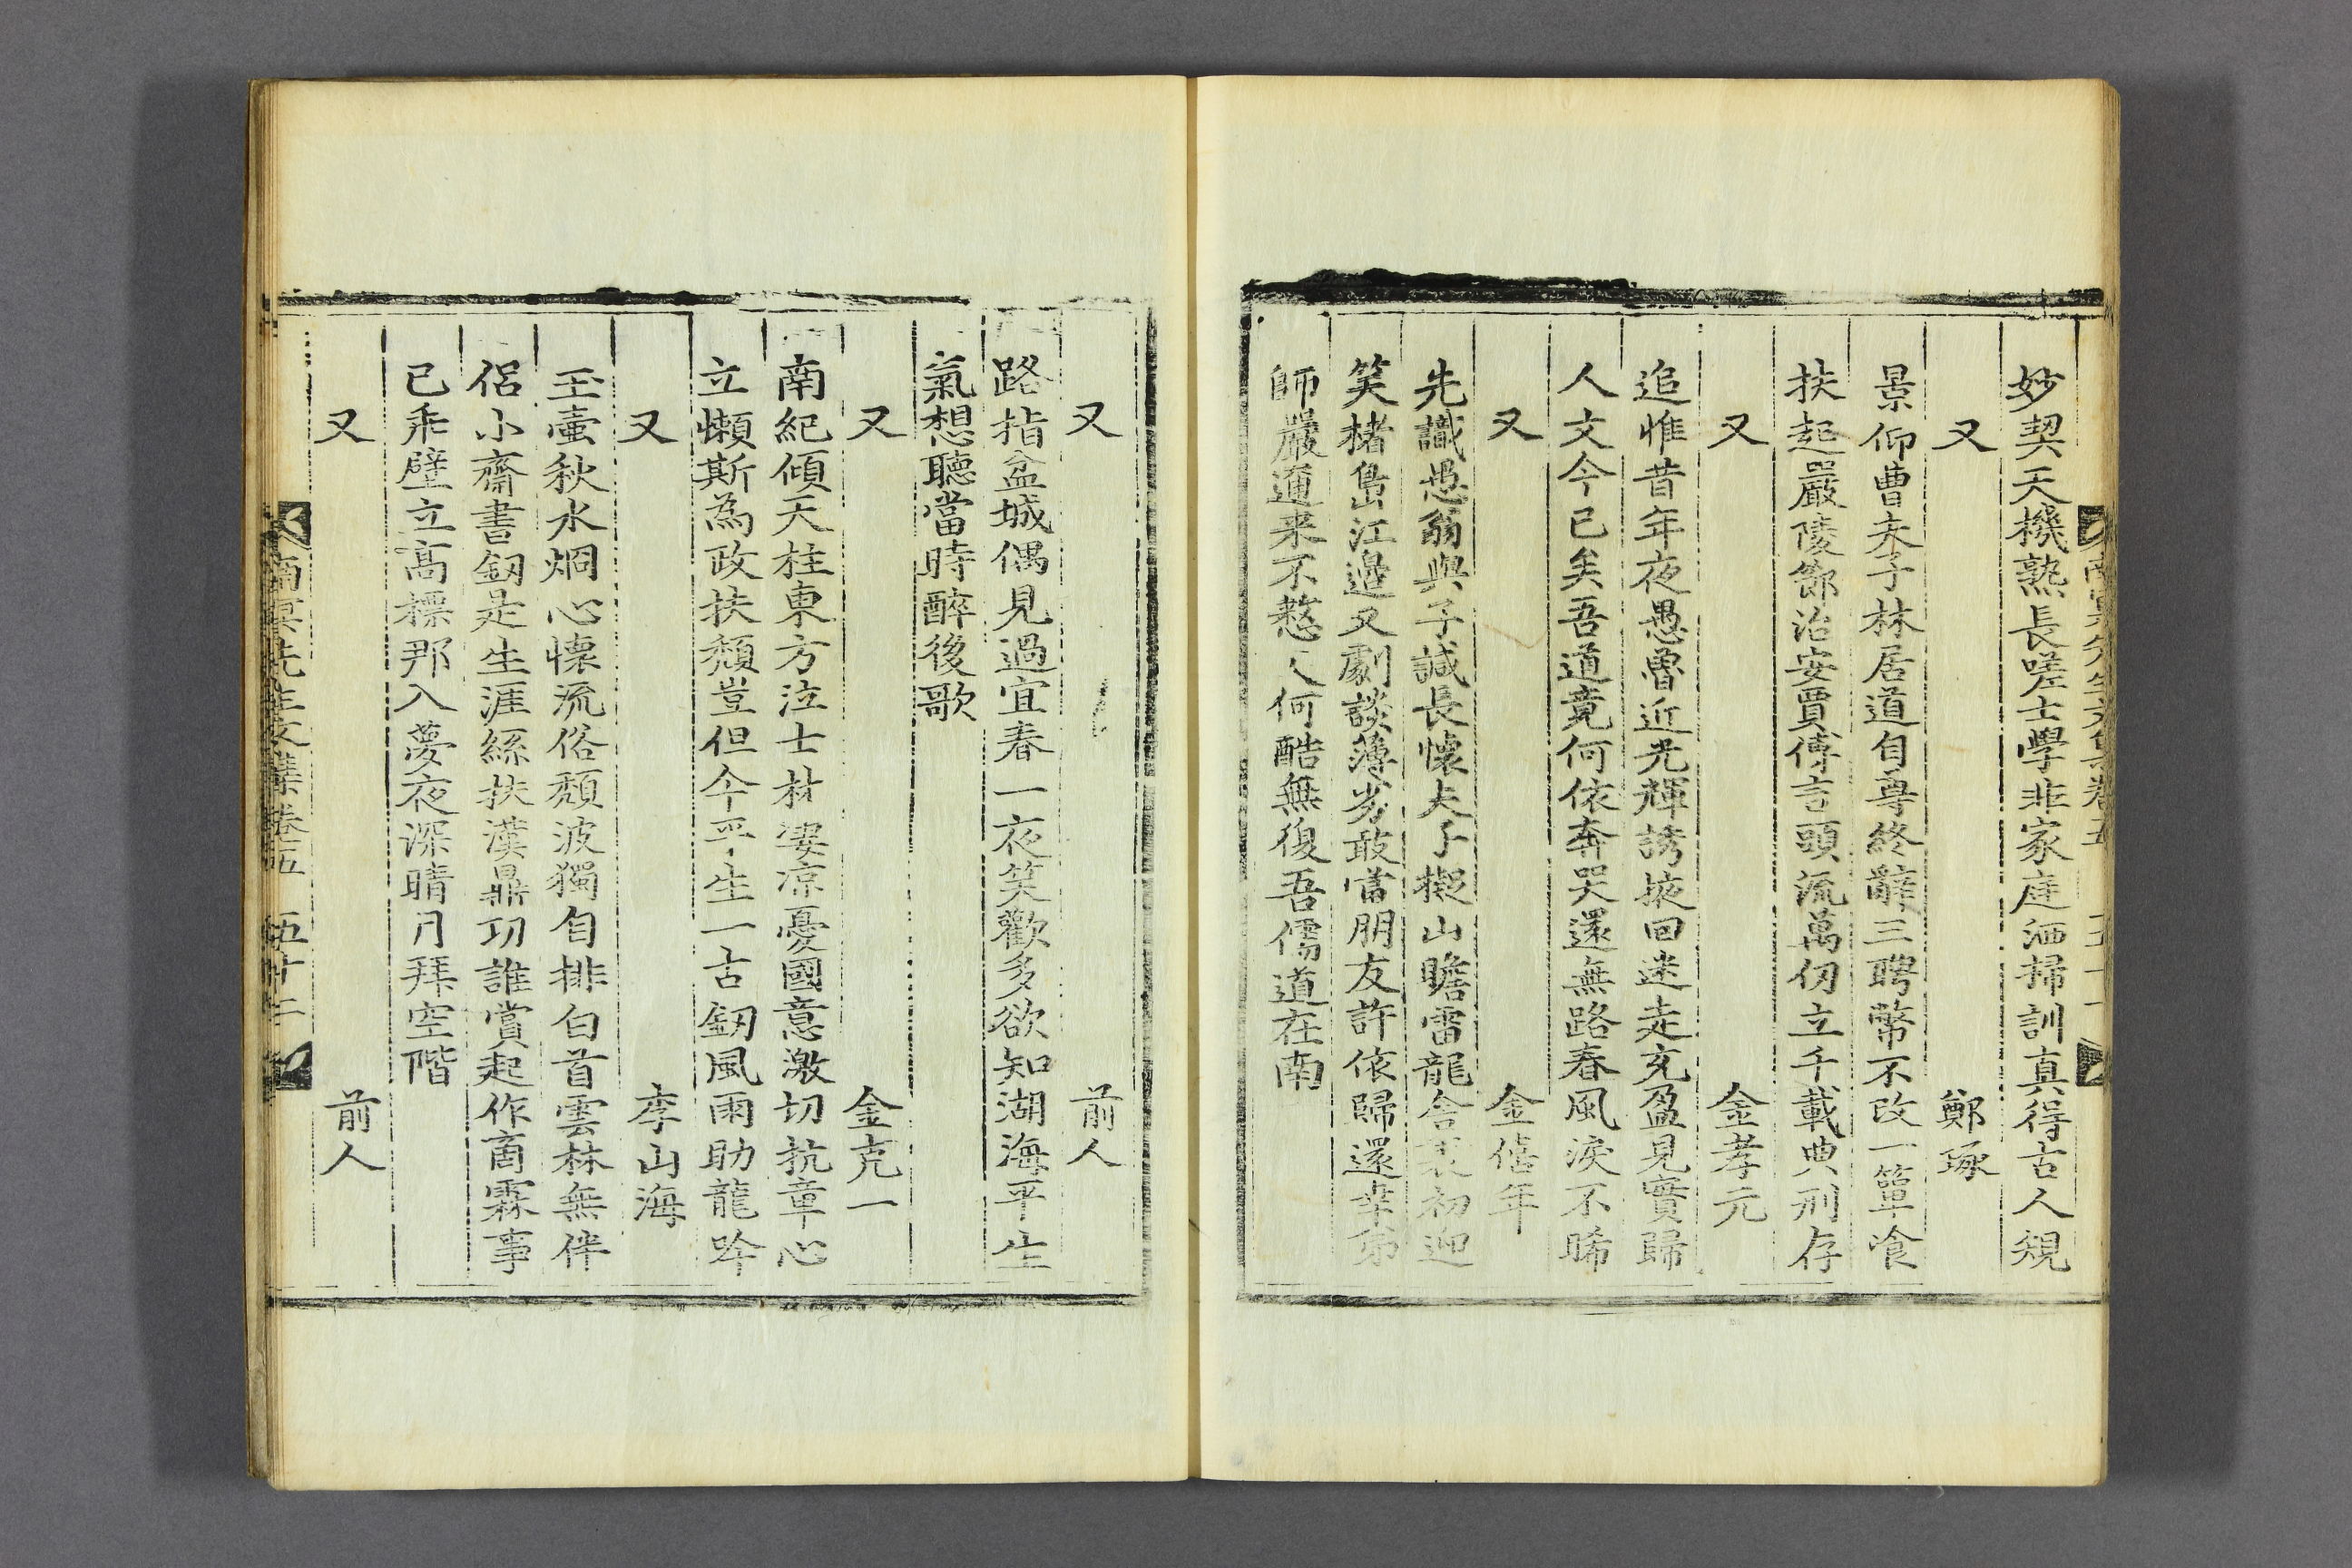 妙契天機熟長嗟士學非家庭洒掃訓真得古人規
又 鄭琢
景仰曹夫子林居道自尊終辭三聘幣不改一簞飡
扶起嚴陵節治安賈傅言頭流萬仞立千載典刑存
又 金孝元
追惟昔年夜愚魯近光輝誘掖回迷走充盈見實歸
人文今已矣吾道竟何依奔哭還無路春風淚不晞
又 金僖年
先識愚翁與子諴長懷夫子擬山瞻雷龍舍裏初迎
笑楮島江邊又劇談薄劣敢當朋友許依歸還幸弟
師嚴邇来不憗人何酷無復吾儒道在南
又 前人
路指盆城偶見過宜春一夜笑歡多欲知湖海平生
氣想聽當時醉後歌
又 金克一
南紀傾天柱東方泣士材凄凉憂國意激切抗章心
立懶斯為政扶頹豈但今平生一古釼風雨助龍吟
又 李山海
玉壷秋水烱心懷流俗頹波獨自排白首雲林無伴
侶小齋書釼是生涯絲扶漢鼎功誰賞起作商霖事
已乖壁立高標那入夢夜深晴月拜空階
又 前人
南冥先生文集卷五 五十二